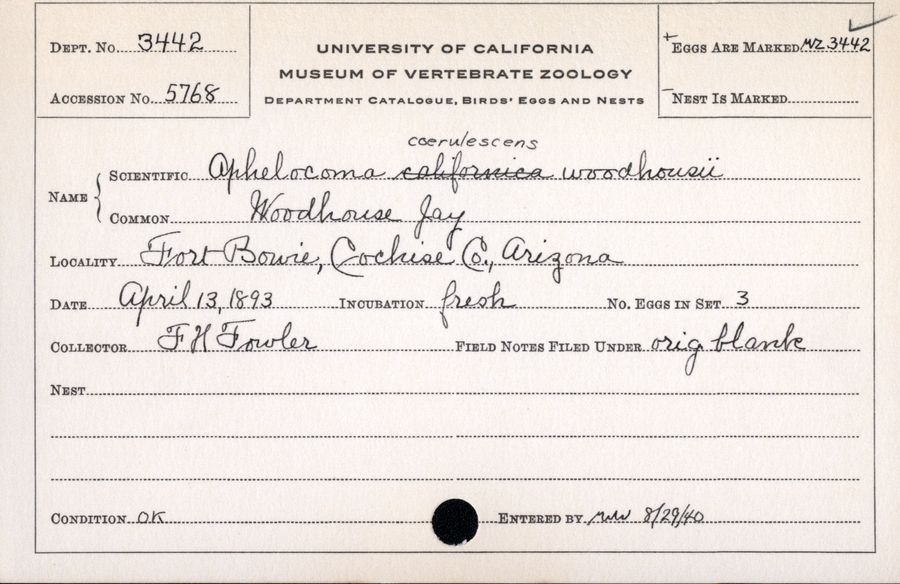 DEPT. NO. 3442
ACCESSION NO. 5768
UNIVERSITY OF CALIFORNIA
MUSEUM OF VERTEBRATE ZOOLOGY
DEPARTMENT CATALOGUE, BIRDS' EGGS AND NESTS
+EGGS ARE MARKED MVZ3442
-NEST IS MARKED
caerulescens
NAME SCIENTIFIC Aphelocoma californica woodhouseii
COMMON Woodhouse Jay
LOCALITY Fort Bowie, Cochise Co., Arizona
DATE April 13, 1893 INCUBATION fresh NO. EGGS IN SET 3
COLLECTOR F H Fowler FIELD NOTES FILED UNDER orig. blank
NEST
CONDITION OK ENTERED BY 8/29/40